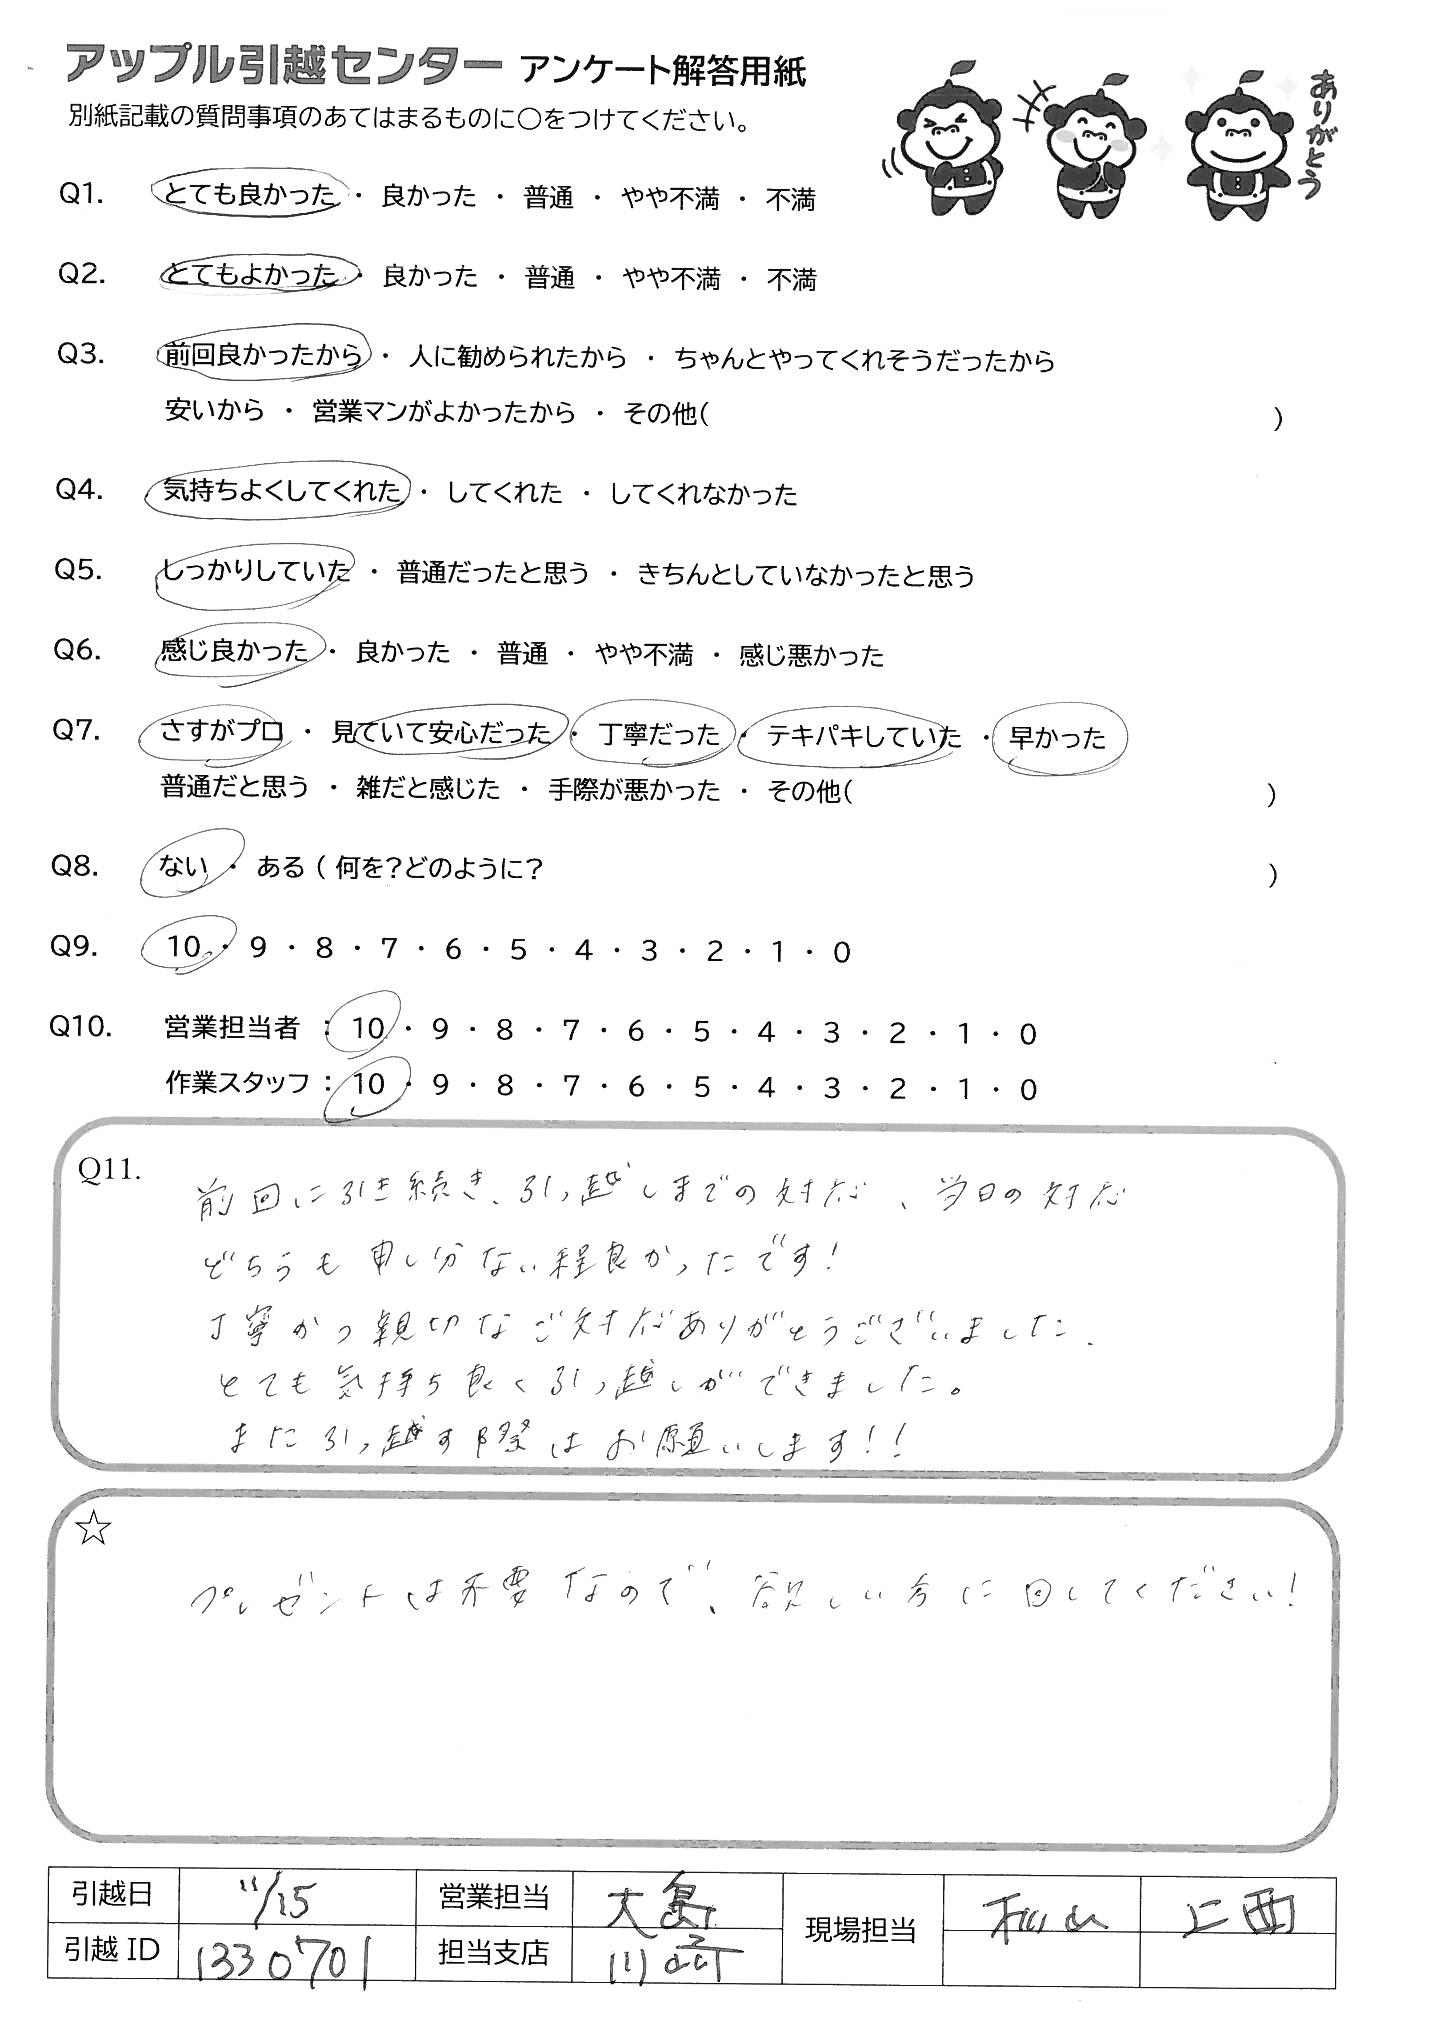 アップル引越センター アンケート解答用紙
別紙記載の質問事項のあてはまるものに〇をつけてください。
ありがとう
Q1. とても良かった ・ 良かった ・ 普通 ・ やや不満 ・ 不満
Q2. とてもよかった ・ 良かった ・ 普通 ・ やや不満 ・ 不満
Q3. 前回良かったから ・ 人に勧められたから ・ ちゃんとやってくれそうだったから
安いから ・ 営業マンがよかったから ・ その他( )
Q4. 気持ちよくしてくれた ・ してくれた ・ してくれなかった
Q5. しっかりしていた ・ 普通だったと思う ・ きちんとしていなかったと思う
Q6. 感じ良かった ・ 良かった ・ 普通 ・ やや不満 ・ 感じ悪かった
Q7. さすがプロ ・ 見ていて安心だった ・ 丁寧だった ・ テキパキしていた ・ 早かった
普通だと思う ・ 雑だと感じた ・ 手際が悪かった ・ その他( )
Q8. ない ・ ある ( 何を?どのように? )
Q9. 10 ・ 9 ・ 8 ・ 7 ・ 6 ・ 5 ・ 4 ・ 3 ・ 2 ・ 1 ・ 0
Q10. 営業担当者 : 10 ・ 9 ・ 8 ・ 7 ・ 6 ・ 5 ・ 4 ・ 3 ・ 2 ・ 1 ・ 0
作業スタッフ : 10 ・ 9 ・ 8 ・ 7 ・ 6 ・ 5 ・ 4 ・ 3 ・ 2 ・ 1 ・ 0
Q11. 前回に引き続き、引っ越しまでの対応、当日の対応
どちらも申し分ない程良かったです!
丁寧かつ親切なご対応ありがとうございました。
とても気持ち良く引っ越しができました。
また引っ越す際はお願いします!!
☆
プレゼントは不要なので、欲しい方に回してください!
引越日 11/15 営業担当 大島 現場担当 秋山 上西
引越ID 1330701 担当支店 川崎